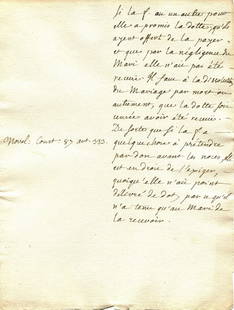 Si la f. ou un autre pour
elle a promis la dotte, qu'ils
ayent offert de la payer
et que par la négligence du
Mari elle n'ait pas été
recuie Il faut à la
du Mariage par mort ou
autrement, que la dotte soit
avoir été recuie.
De sorte que si la f. a
Court. 87 art. 333.
quelque chose à prétendre
par don avant les noces, elle
est en droit de l'exiger,
quoiqu'elle n'ait point
délivré de dot, parce qu'il
n'a tenu qu'au Mari de
la recevoir.